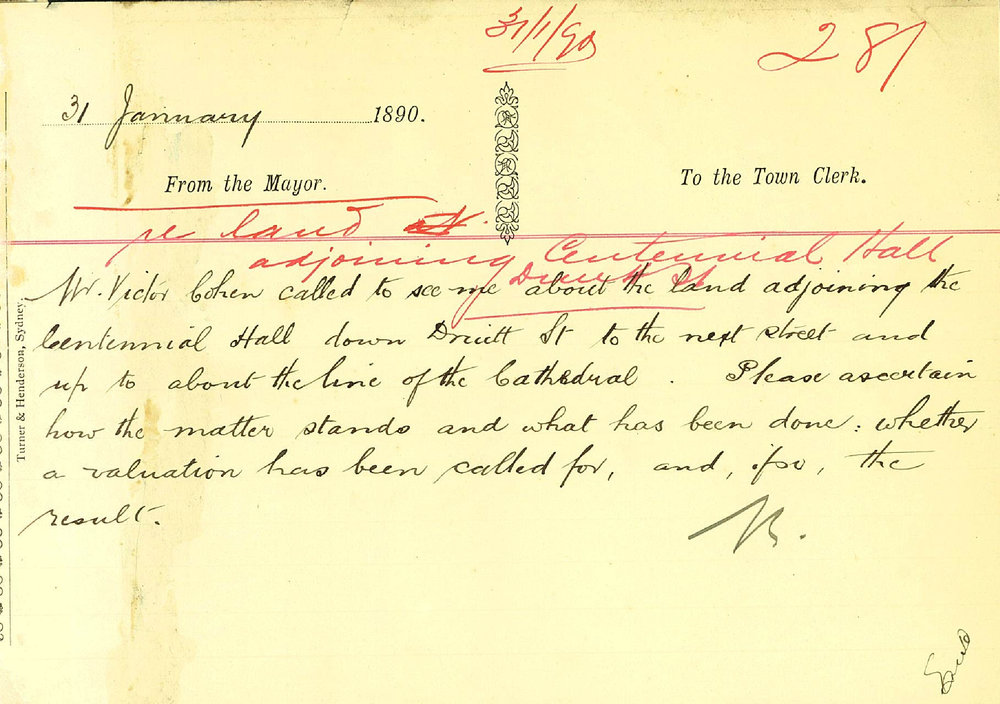 31/1/90
281
31 January 1890.
From the Mayor.
To the Town Clerk.
re land
adjoining Centennial Hall
Druitt St
Mr. Victor Cohen called to see me about the land adjoining the
Centennial Hall down Druitt St to the next street and
up to about the line of the Cathedral. Please ascertain
how the matter stands and what has been done: whether
a valuation has been called for, and, if so, the
result.
Turner & Henderson, Sydney.